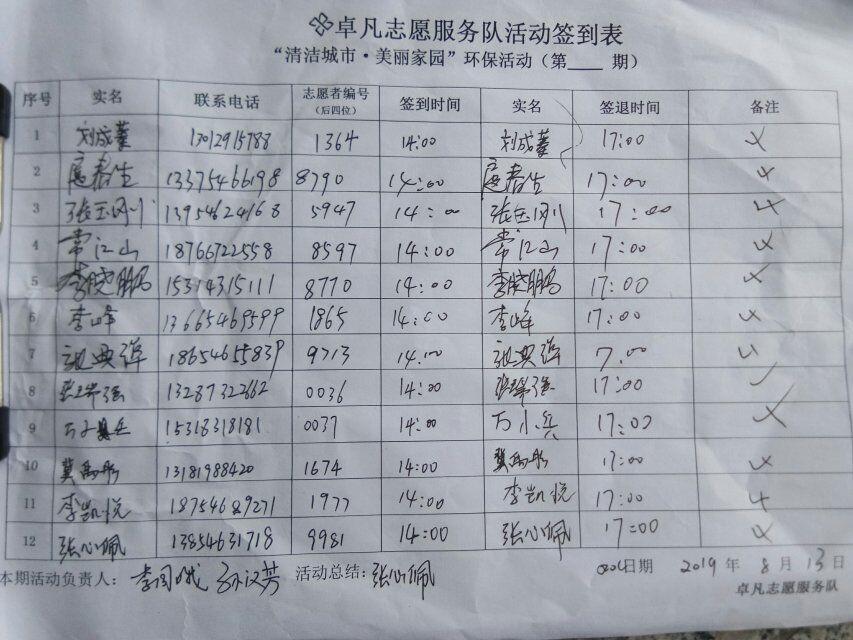 卓凡志愿服务队活动签到表
“清洁城市·美丽家园”环保活动（第____ 期）
序号 实名 联系电话 志愿者编号（后四位） 签到时间 实名 签退时间 备注
1 刘成 1301291578 1364 14:00 刘成 17:00
2 春生 13375466198 8790 14:00 春生 17:00
3 张玉刚 13954624168 5947 14:00 张玉刚 17:00
4 常江山 18766722558 8597 14:00 常江山 17:00
5 李晓鹏 15314315111 8770 14:00 李晓鹏 17:00
6 李峰 13665469599 1865 14:00 李峰 17:00
7 18654655839 9713 14:00 7:00
8 强 13287322662 0036 14:00 强 17:00
9 万小兵 15318318181 0037 14:00 万小兵 17:00
10 冀 13181988420 1674 14:00 冀 17:00
11 李凯悦 18754689271 1977 14:00 李凯悦 17:00
12 张心佩 13854631718 9981 14:00 张心佩 17:00
本期活动负责人： 李 孙汉芳 活动总结：张心佩 日期 2019 年 8 月 13 日
卓凡志愿服务队